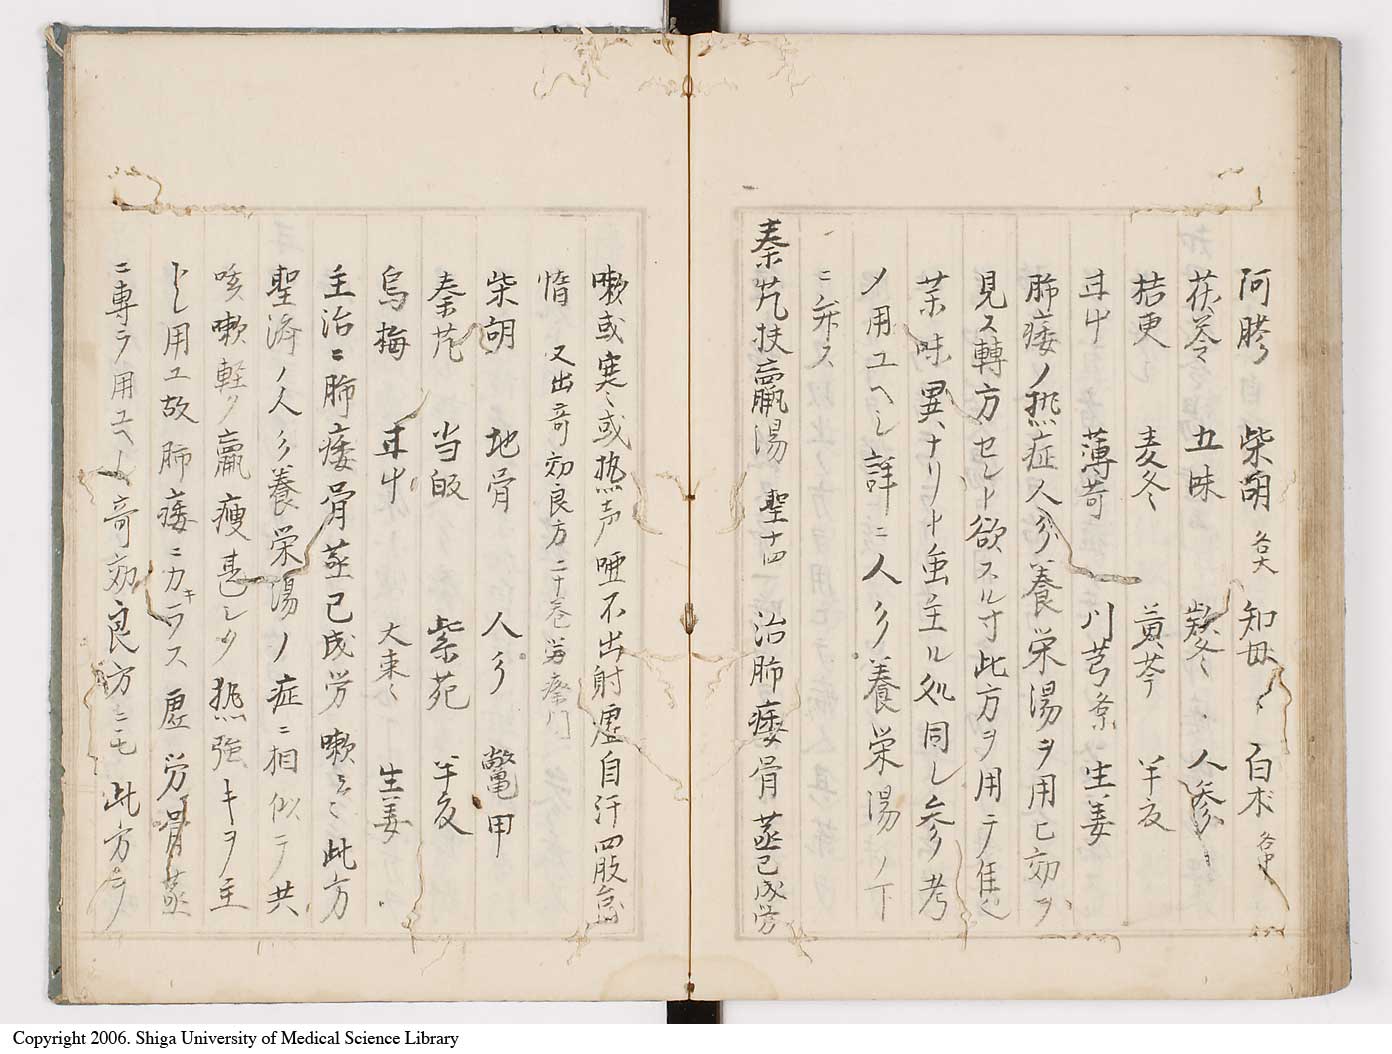 阿膠 柴胡各大 知母〻 白朮各中
茯苓 五味 欵冬〻 人参〻
桔更〻 麦冬 黄芩 半夏
甘中 薄荷 川芎小 生姜
肺痿ノ熱症人参養栄湯ヲ用ヒ効ヲ
見ス轉方セント欲スル寸此方ヲ用テ隹也
薬味異ナリト虽主ル処同シ参考
メ用ユヘシ詳ニ人参養栄湯ノ下
ニ弁ス
秦艽扶羸湯 聖十四 治肺痿骨蒸已成労
嗽或寒〻或熱声唖不出射虚自汗四肢怠
惰 又出奇効良方二十巻労瘵門
柴胡 地骨 人参 鼈甲
秦艽 当皈 紫苑 半夏
烏梅 甘中 大棗〻 生姜
主治ニ肺痿骨蒸已成労嗽云〻此方
聖済ノ人参養栄湯ノ症ニ相似テ共
咳嗽軽ク羸瘦甚シク熱強キヲ主
トシ用ユ故肺痿ニカキラス虚労骨蒸
ニ専ラ用ユヘシ奇効良方ニモ此方ヲ
Copyright 2006. Shiga University of Medical Science Library